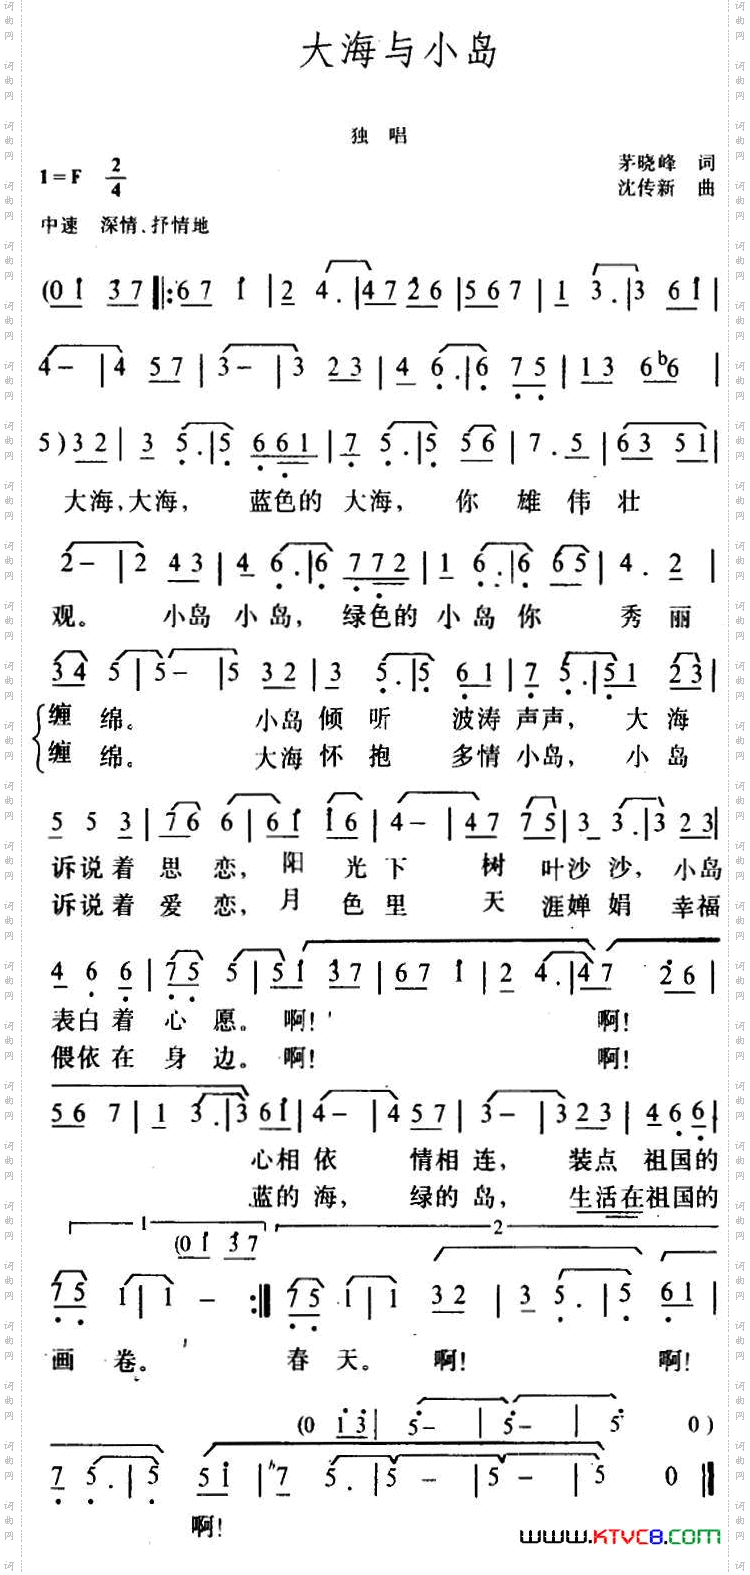 大海与小岛
独 唱
1=F 2/4
茅晓峰 词
沈传新 曲
中速 深情、抒情地
(0 1 3 7 ‖: 6 7 1 | 2 4. | 4 7 2 6 | 5 6 7 | 1 3. | 3 6 1 |
4 – | 4 5 7 | 3 – | 3 2 3 | 4 6. | 6 7 5 | 1 3 6 b6 |
5 ) 3 2 | 3 5. | 5 6 6 1 | 7 5. | 5 5 6 | 7. 5 | 6 3 5 1 |
大海,大海, 蓝色的 大海, 你 雄 伟 壮
2 – | 2 4 3 | 4 6. | 6 7 7 2 | 1 6. | 6 6 5 | 4. 2 |
观。 小岛 小岛, 绿色的 小岛你 秀丽
3 4 5 | 5 – | 5 3 2 | 3 5. | 5 6 1 | 7 5. | 5 1 2 3 |
缠 绵。 小岛 倾 听 波涛 声声, 大 海
缠 绵。 大海 怀 抱 多情 小岛, 小 岛
5 5 3 | 7 6 6 | 6 1 1 6 | 4 – | 4 7 7 5 | 3 3. | 3 2 3 |
诉说着 思 恋, 阳 光下 树 叶沙 沙, 小岛
诉说着 爱 恋, 月 色里 天 涯婵 娟 幸福
4 6 6 | 7 5 5 | 5 1 3 7 | 6 7 1 | 2 4. | 4 7 2 6 |
表白着 心 愿。 啊! 啊!
偎依在 身 边。 啊! 啊!
5 6 7 | 1 3. | 3 6 1 | 4 – | 4 5 7 | 3 – | 3 2 3 | 4 6 6 |
心相 依 情相 连, 装点 祖国的
蓝的 海, 绿的 岛, 生活在祖国的
1 (0 1 3 7 2
7 5 1 | 1 – :‖ 7 5 1 | 1 3 2 | 3 5. | 5 6 1 |
画 卷。 春 天。 啊! 啊!
(0 1 3 | 5 – | 5 – | 5 0 )
7 5. | 5 5 1 | 7 5. | 5 – | 5 – | 5 0 ‖
啊!
www.KTVC8.com
词曲网